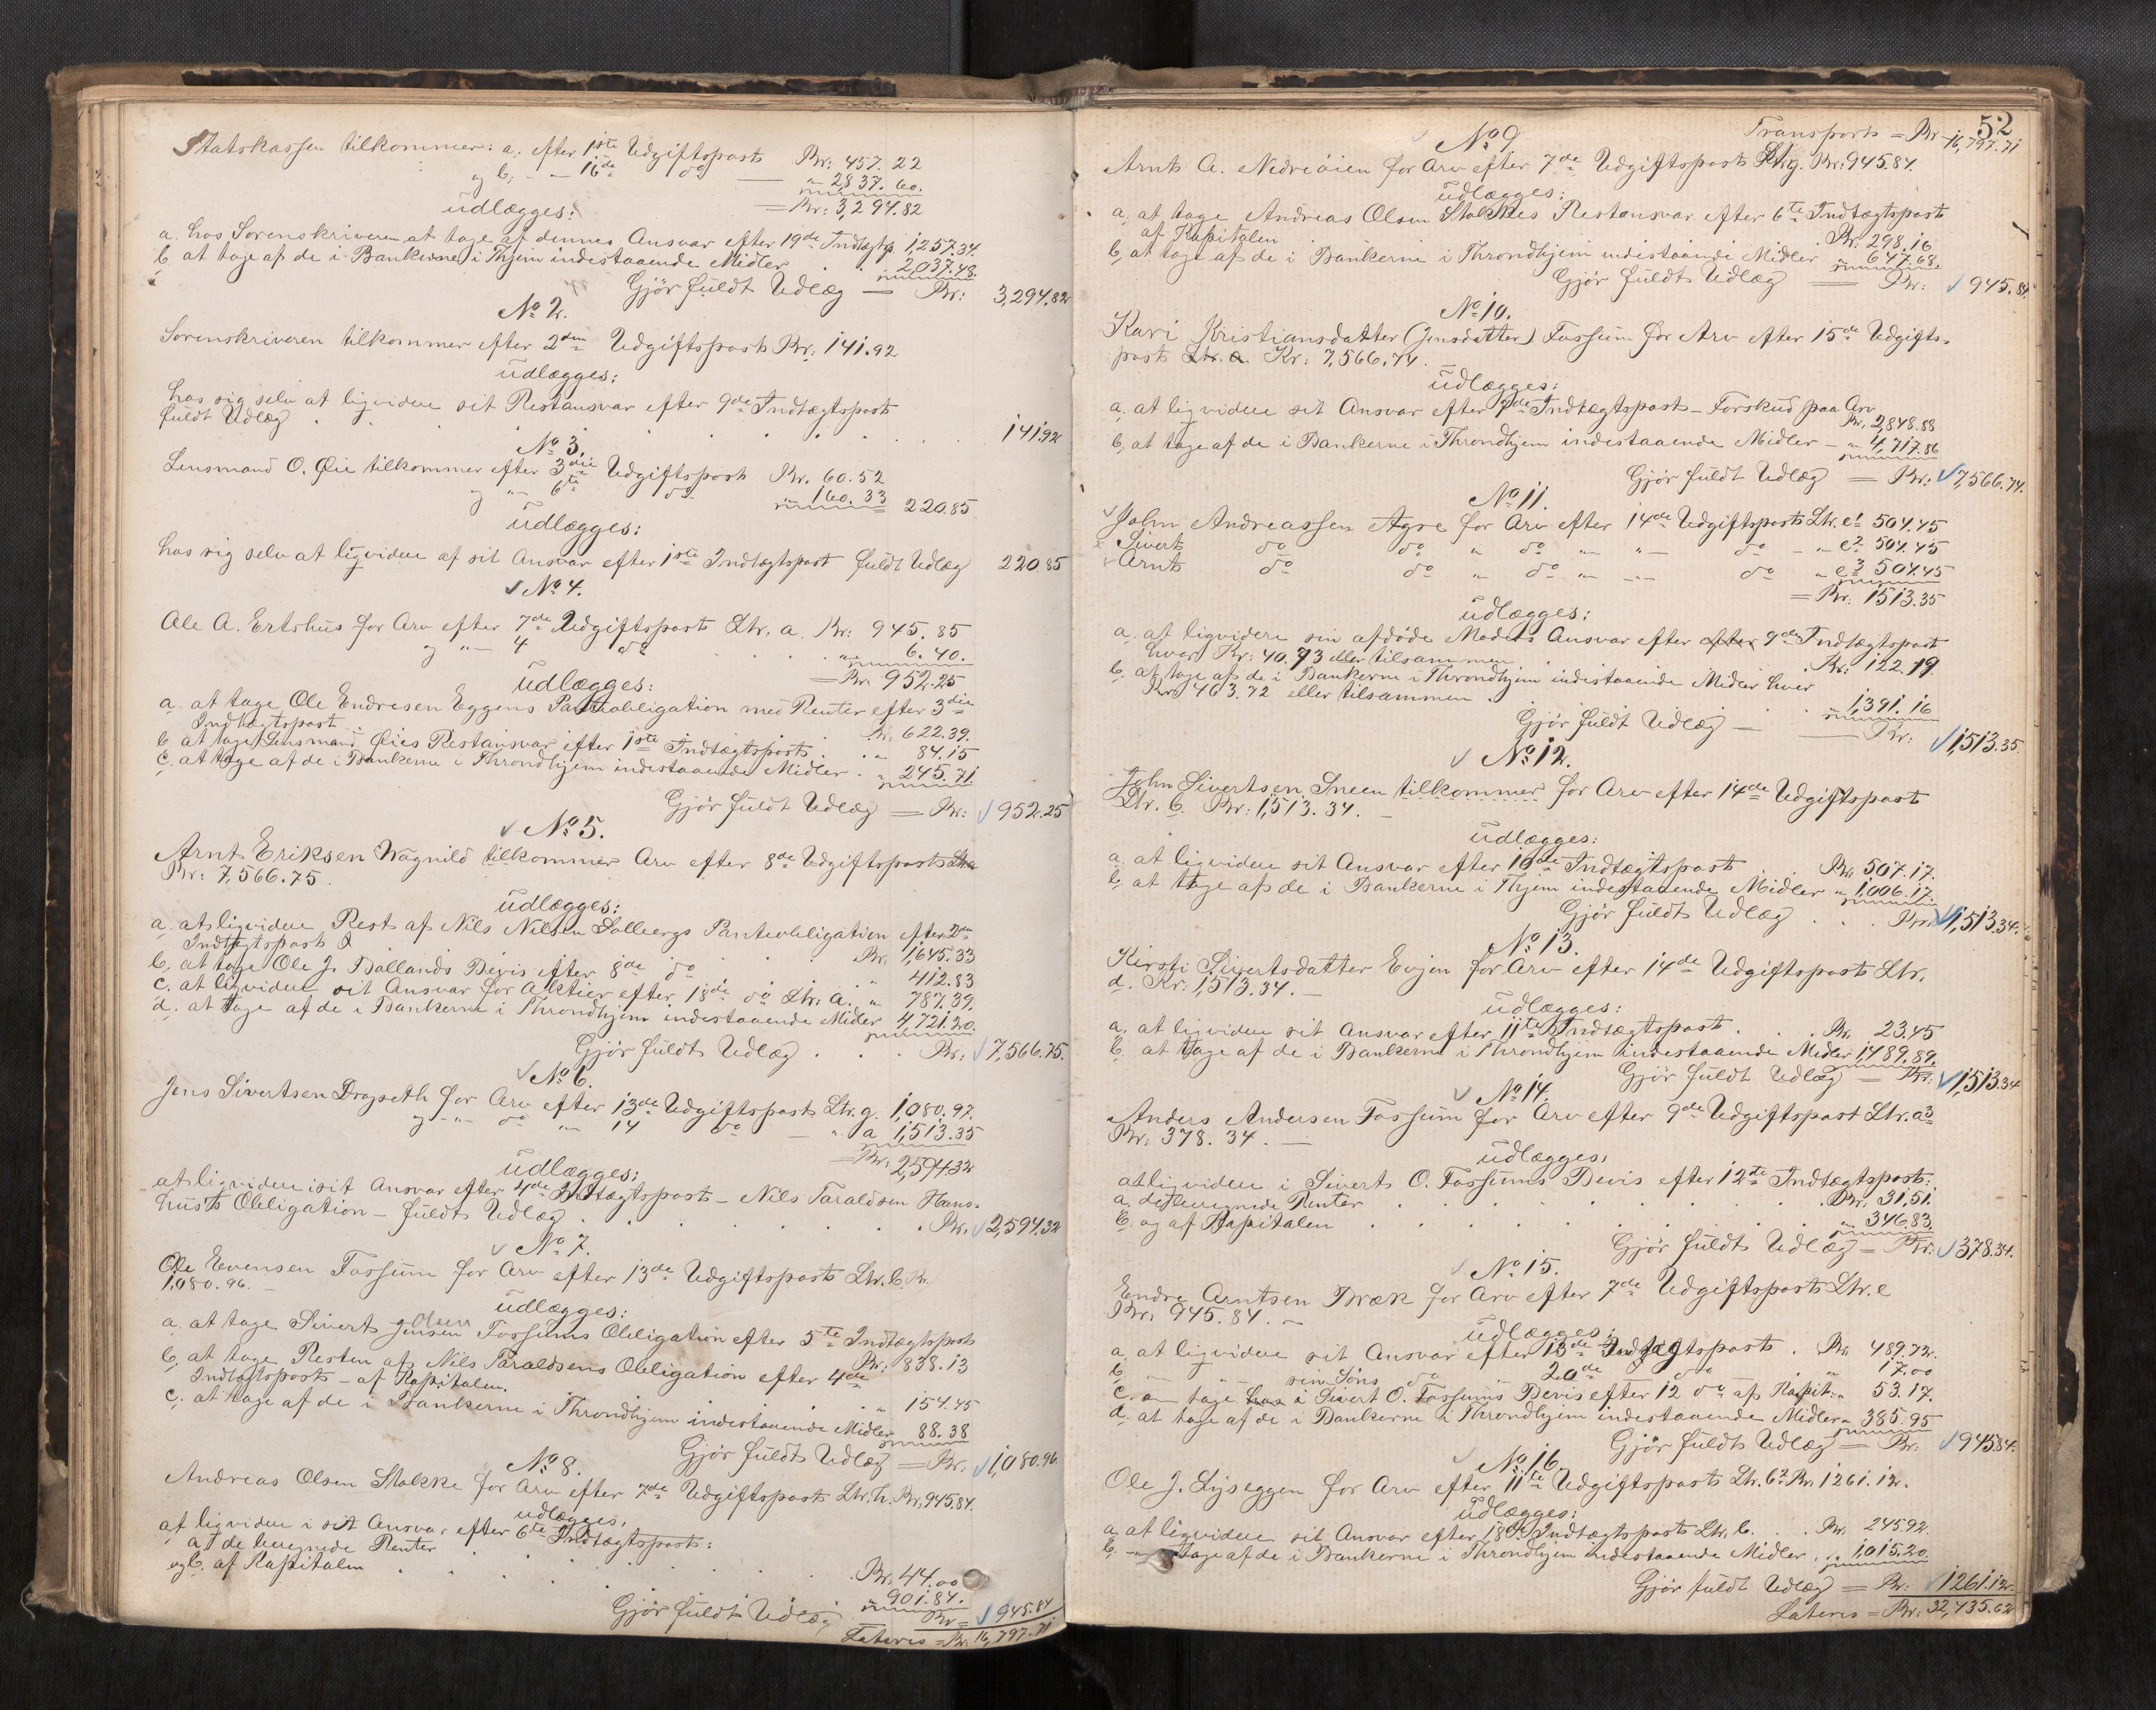 Statskassen tilkommer: a. efter 1ste Udgiftspost Kr: 457.22
og b, - " - 16de do — " 2837.60.
= Kr: 3,294.82
udlægges:
a. hos Sorenskriveren at tage af dennes Ansvar efter 19de Indtægtsp. 1,257.34.
b. at tage af de i Bankerne i Thjem indestaaende Midler . . " 2037.48.
Gjør fuldt Udlæg — Kr: 3,294.82
No 2.
Sorenskriveren tilkommer efter 2den Udgiftspost Kr. 141.92
udlægges:
hos sig selv at ligvidere sit Restansvar efter 9de Indtægtspost
fuldt Udlæg . . . . . . . . 141.92
No 3.
Lensmand O. Øie tilkommer efter 3die Udgiftspost Kr. 60.52
og " - 6te do " 160.33 220.85
udlægges:
hos sig selv at ligvidere af sit Ansvar efter 1ste Indtægtspost fuldt Udlæg 220.85
No 4.
Ole A. Ertshus for Arv efter 7de Udgiftspost Ltr. a. Kr: 945.85
og " - 4 do . . . " 6.40.
= Kr. 952.25
udlægges:
a. at tage Ole Endresen Eggens Panteobligation med Renter efter 3die
Indtægtspost . . Kr. 622.39.
b. at tage Lensmand Øies Restansvar efter 1ste Indtægtspost . . " 84.15
c. at tage af de i Bankerne i Throndhjem indestaaende Midler . " 245.71.
Gjør fuldt Udlæg = Kr: 952.25
No 5.
Arnt Eriksen Vognild tilkommer Arv efter 8de Udgiftspost
Kr: 7,566.75.
udlægges:
a. at ligvidere Rest af Nils Nilsen Solbergs Panteobligation efter 2den
Indtægtspost . . . . Kr. 1,645.33
b. at tage Ole J. Dallands Bevis efter 8de do . . . " 412.83
c. at ligvidere sit Ansvar for Aktier efter 18de do Ltr. a. " 787.39.
d. at tage af de i Bankerne i Throndhjem indestaaende Midler 4,721.20.
Gjør fuldt Udlæg . . . Kr. 7,566.75.
No 6.
Jens Sivertsen Drogseth for Arv efter 13de Udgiftspost Ltr. g. 1,080.97.
og - " - do " 14 do — " a 1,513.35
= Kr. 2,594.32
udlægges:
at ligvidere i sit Ansvar efter 4de Indtægtspost - Nils Taraldsen Hans-
huste Obligation - fuldt Udlæg . . . . . Kr. 2,594.32
No 7.
Ole Evensen Fossum for Arv efter 13de Udgiftspost Ltr. b. Kr.
1,080.96. -
udlægges:
Olsen
a. at tage Sivert Jensen Fossums Obligation efter 5te Indtægtspost
Kr: 838.13
b, at tage Resten af Nils Taraldsens Obligation efter 4de
Indtægtspost - af Kapitalen. . . . " 154.45
c. at tage af de i Bankerne i Throndhjem indestaaende Midler 88.38
Gjør fuldt Udlæg = Kr. 1,080.96.
No 8.
Andreas Olsen Stokke for Arv efter 7de Udgiftspost Ltr. h. Kr, 945.84.
udlægges,
at ligvidere i sit Ansvar efter 6te Indtægtspost:
a. de beregnede Renter . . . . . Kr. 44.00
og b. af Kapitalen . . . . . " 901.84.
Gjør fuldt Udlæg Kr = 945.84
Lateris = Kr. 16,797.71
52
Transport = Kr 16,797.71
No 9
Arnt A. Nedreøien for Arv efter 7de Udgiftspost Ltr. g. Kr: 945.84.
udlægges:
a. at tage Andreas Olsen Stokkes Restansvar efter 6te Indtægtspost
af Kapitalen . Kr. 298.16
b, at tage af de i Bankerne i Throndhjem indestaaende Midler " 647.68.
Gjør fuldt Udlæg — Kr: 945.84.
No 10.
Kari Kristiansdatter (Jensdatter) Fossum for Arv efter 15de Udgifts-
post Ltr. a. Kr: 7,566.74. -
udlægges:
a. at ligvidere sit Ansvar efter 7de Indtægtspost - Forskud paa Arv
Kr. 2,848.88
b, at tage af de i Bankerne i Throndhjem indestaaende Midler — " 4,717.86
Gjør fuldt Udlæg = Kr: 7,566.74.
No 11.
John Andreassen Agre for Arv efter 14de Udgiftspost Ltr. e1 504.45
Sivert do do " do " - " - do - " e2 504.45
Arnt do do " do " - " - do " e3 504.45
= Kr. 1513.35
udlægges:
a. at ligvidere sin afdøde Moders Ansvar efter efter 9de Indtægtspost
hver Kr: 40.73 eller tilsammen . . Kr: 122.19.
b. at tage af de i Bankerne i Throndhjem indestaaende Midler hver
Kr. 463.72 eller tilsammen . . . 1,391.16
Gjør fuldt Udlæg — Kr: 1,513.35.
No 12.
John Sivertsen Sneen tilkommer for Arv efter 14de Udgiftspost
Ltr. b. Kr: 1,513.34. -
udlægges:
a. at ligvidere sit Ansvar efter 10de Indtægtspost . . Kr. 507.17.
b, at tage af de i Bankerne i Thjem indestaaende Midler " 1,006.17.
Gjør fuldt Udlæg . . Kr. 1,513.34.
No 13.
Kirsti Sivertsdatter Evjen for Arv efter 14de Udgiftspost Ltr.
d. Kr: 1,513.34. -
udlægges:
a. at ligvidere sit Ansvar efter 11te Indtægtspost . . . Kr. 23.45
b. at tage af de i Bankerne i Throndhjem indestaaende Midler 1,489.89.
Gjør fuldt Udlæg — Kr: 1,513.34
No 14.
Anders Andersen Fossum for Arv efter 9de Udgiftspost Ltr. a3
Kr. 378.34. -
udlægges.
at ligvidere i Sivert O. Fossums Bevis efter 12te Indtægtspost:
a. de beregnede Renter . . . . . Kr. 31,51.
b. og af Kapitalen . . . . . . " 346.83.
Gjør fuldt Udlæg = Kr: 378.34.
No 15.
Endre Arntsen Bræk for Arv efter 7de Udgiftspost Ltr. e
Kr. 945.84. -
udlægges:
a. at ligvidere sit Ansvar efter 13de Indtægtspost . Kr. 489.72.
b, " - " sin Søns do 20de do . " 17.00
c. " tage hos i Sivert O. Fossums Bevis efter 12 do af Kapit. " 53.17.
d. at tage af de i Bankerne i Throndhjem indestaaende Midler " 385.95
Gjør fuldt Udlæg = Kr. 945.84.
No 16.
Ole J. Lyseggen for Arv efter 11te Udgiftspost Ltr. b2 Kr. 1261.12.
udlægges:
a. at ligvidere sit Ansvar efter 18de Indtægtspost Ltr. b. . . Kr. 245.92.
b. - " - tage af de i Bankerne i Throndhjem indestaaende Midler . " 1,015.20.
Gjør fuldt Udlæg = Kr: 1261.12.
Lateris = Kr: 32,435.62